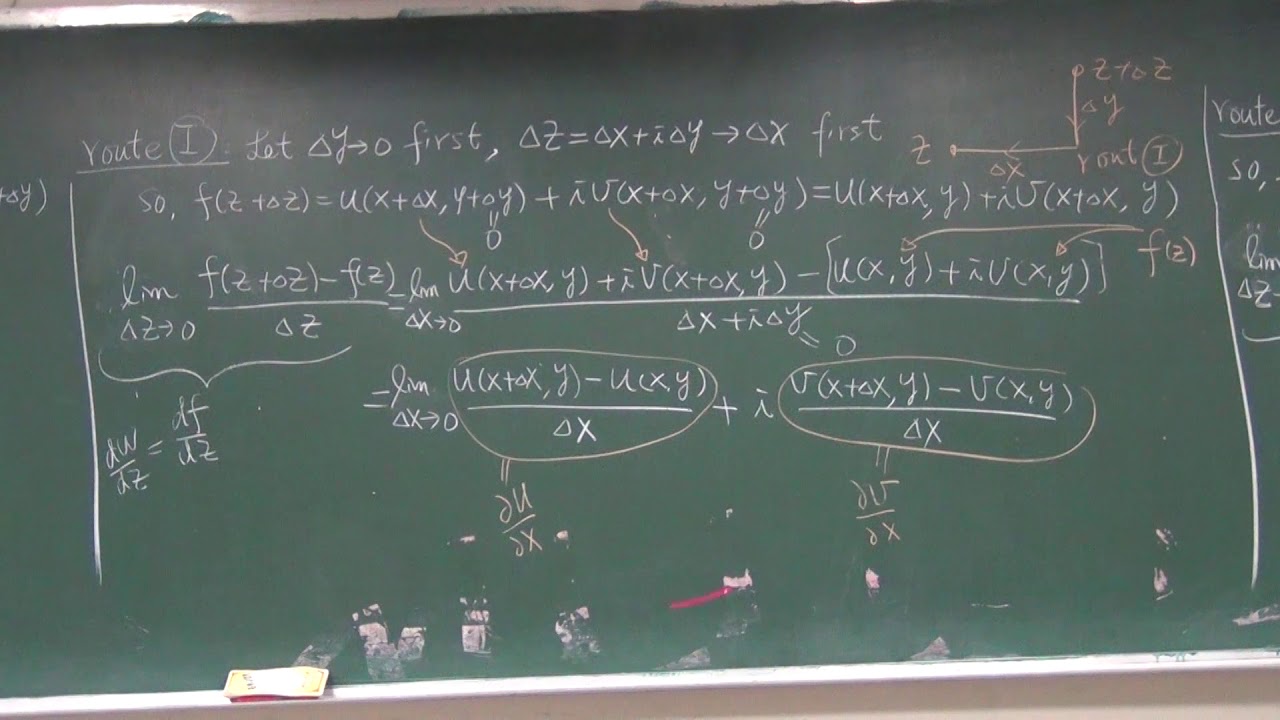 +Δy)
route Ⓘ: Let Δy→0 first, Δz=Δx+iΔy→Δx first
z+Δz
Δy
z
Δx
rout Ⓘ
so, f(z+Δz)=u(x+Δx, y+Δy)+iv(x+Δx, y+Δy)=u(x+Δx, y)+iv(x+Δx, y)
‖ ‖
0 0
f(z)
lim_{Δz→0} \frac{f(z+Δz)-f(z)}{Δz} = lim_{Δx→0} \frac{u(x+Δx, y)+iv(x+Δx, y)-[u(x, y)+iv(x, y)]}{Δx+iΔy}
= 0
= lim_{Δx→0} \frac{u(x+Δx, y)-u(x, y)}{Δx} + i \frac{v(x+Δx, y)-v(x, y)}{Δx}
\frac{dw}{dz} = \frac{df}{dz}
‖ ‖
\frac{∂u}{∂x} \frac{∂v}{∂x}
route
so,
lim
Δz→